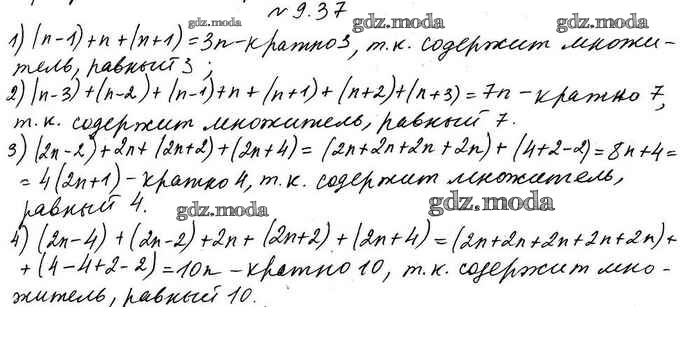 № 9.37
gdz.moda gdz.moda
1) (n-1)+n+(n+1)=3n-кратно 3, т.к. содержит множи-
тель, равный 3; gdz.moda gdz.moda
2) (n-3)+(n-2)+(n-1)+n+(n+1)+(n+2)+(n+3)=7n-кратно 7,
т.к. содержит множитель, равный 7.
3) (2n-2)+2n+(2n+2)+(2n+4)=(2n+2n+2n+2n)+(4+2-2)=8n+4=
=4(2n+1)-кратно 4, т.к. содержит множитель,
равный 4. gdz.moda gdz.moda
4) (2n-4)+(2n-2)+2n+(2n+2)+(2n+4)=(2n+2n+2n+2n+2n)+
+(4-4+2-2)=10n-кратно 10, т.к. содержит мно-
житель, равный 10.